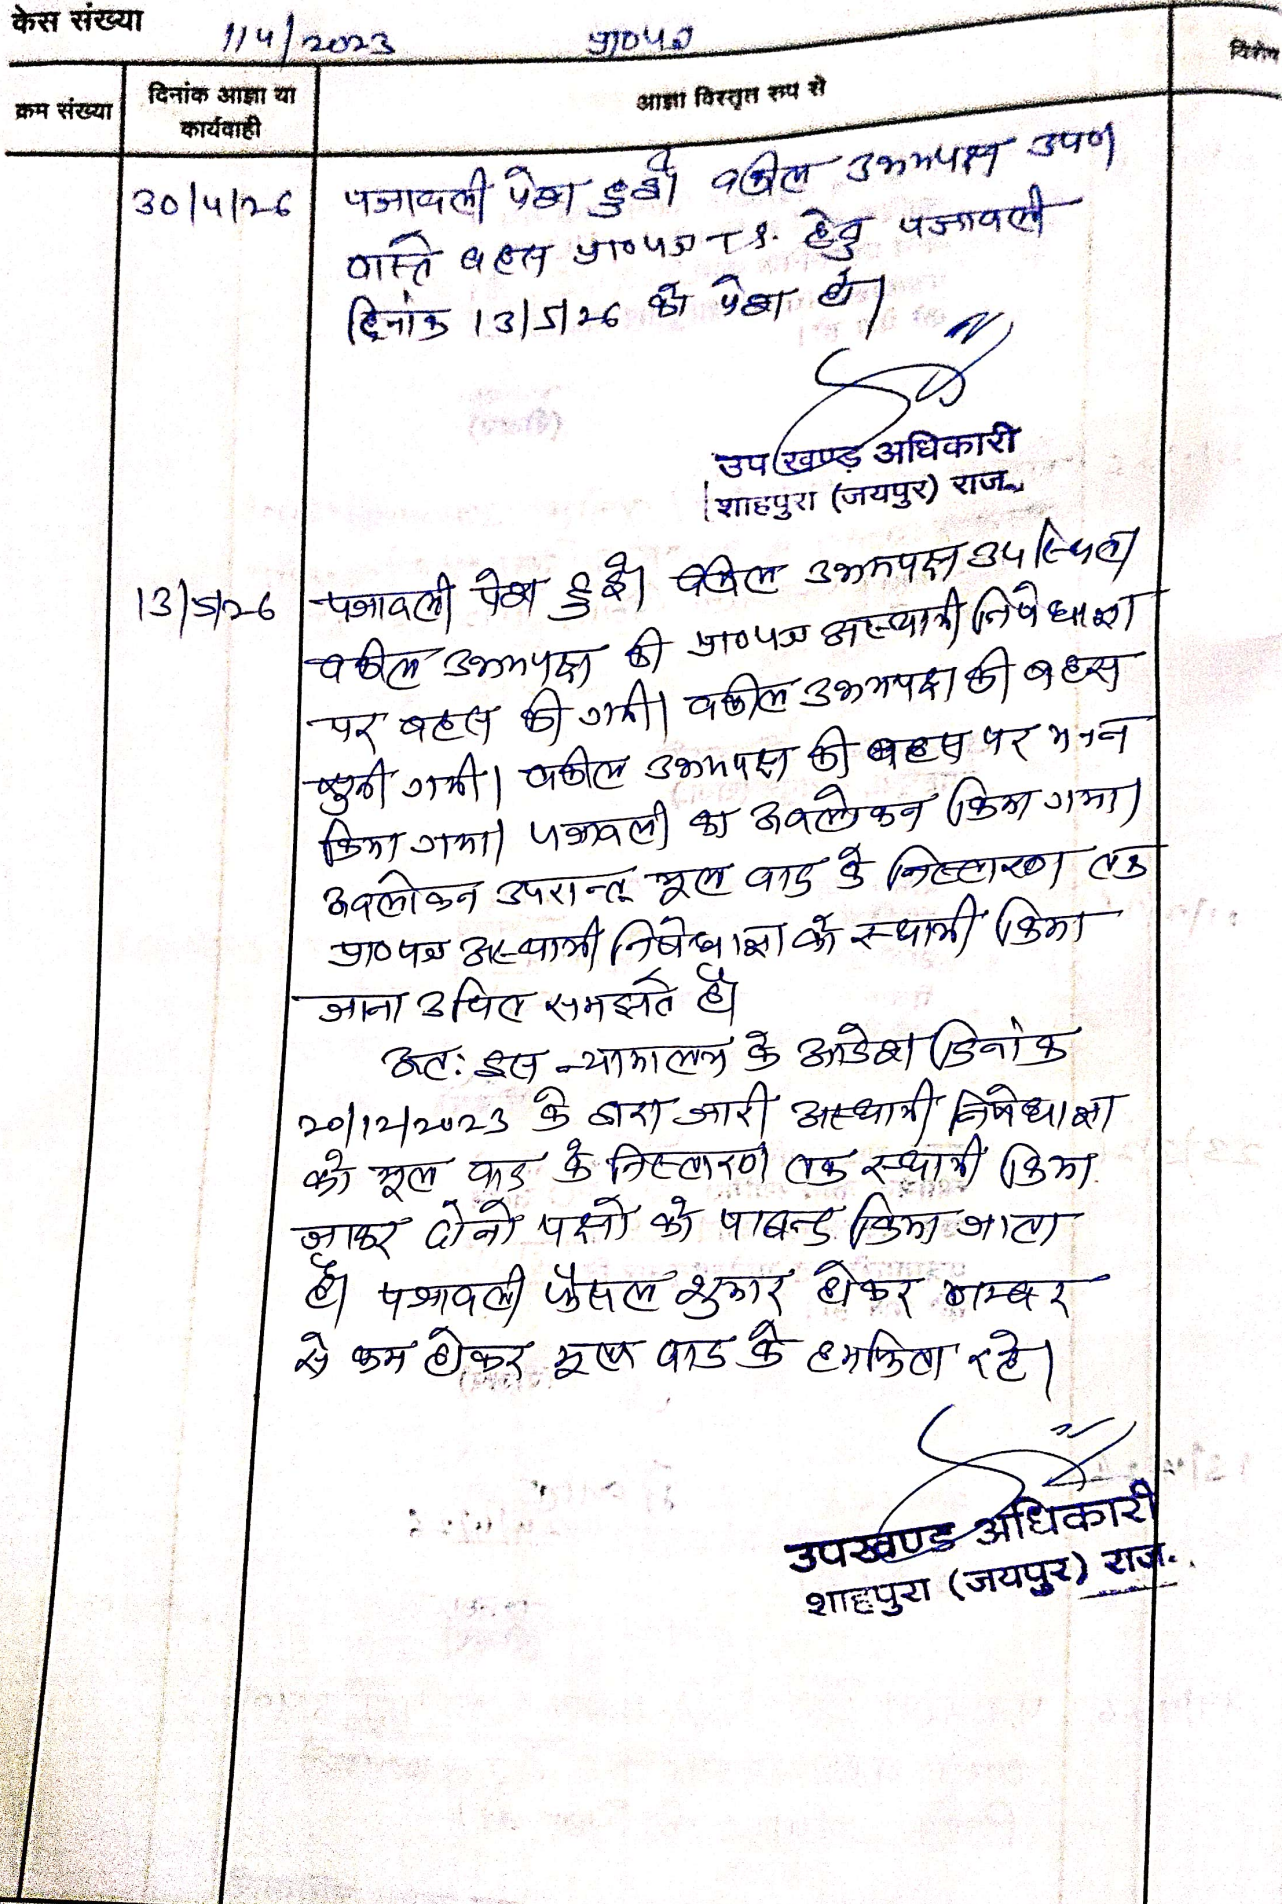 केस संख्या 114/2023 प्रा०पत्र
विशेष
क्रम संख्या
दिनांक आज्ञा या
कार्यवाही
आज्ञा विस्तृत रुप से
30/4/26
पत्रावली पेश हुई। वकील उभयपक्ष उप०
वास्ते बहस प्रा०पत्र T.I. हेतु पत्रावली
दिनांक 13/5/26 को पेश हो।
उप खण्ड़ अधिकारी
शाहपुरा (जयपुर) राज.
13/5/26
पत्रावली पेश हुई। वकील उभयपक्ष उपस्थित।
वकील उभयपक्ष की प्रा०पत्र अस्थायी निषेधाज्ञा
पर बहस की गयी। वकील उभयपक्ष की बहस
सुनी गयी। वकील उभयपक्ष की बहस पर मनन
किया गया। पत्रावली का अवलोकन किया गया।
अवलोकन उपरान्त मूल वाद के निस्तारण तक
प्रा०पत्र अस्थायी निषेधाज्ञा को स्थायी किया
जाना उचित समझते है।
अत: इस न्यायालय के आदेश दिनांक
20/12/2023 के द्वारा जारी अस्थायी निषेधाज्ञा
को मूल वाद के निस्तारण तक स्थायी किया
जाकर दोनो पक्षो को पाबन्द किया जाता
है। पत्रावली फैसल शुमार होकर नम्बर
से कम होकर मूल वाद के हमफिता रहे।
उपखण्ड अधिकारी
शाहपुरा (जयपुर) राज.